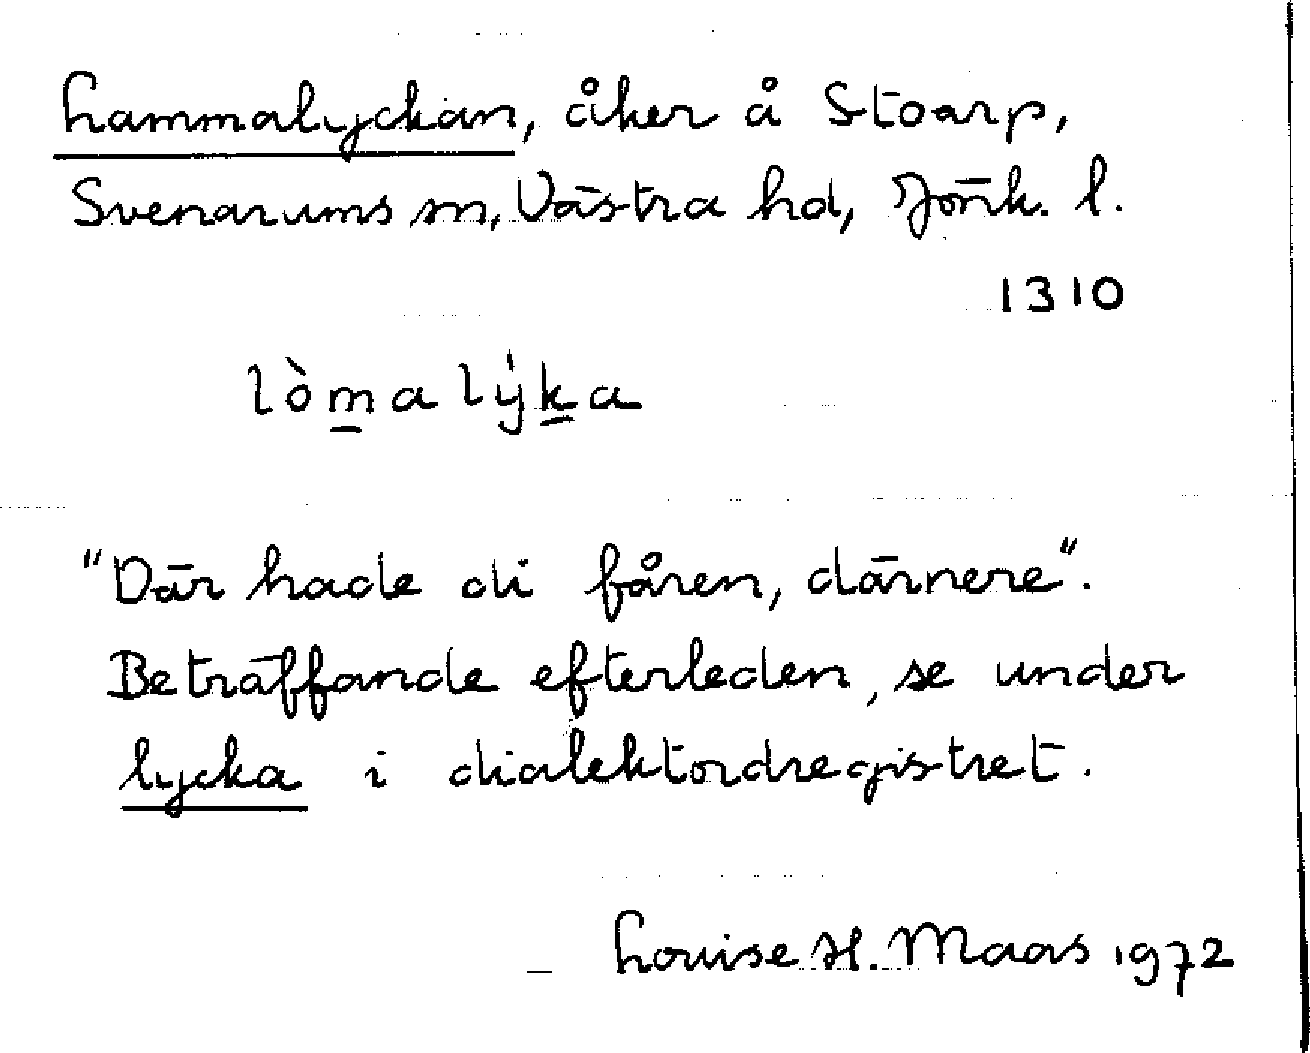 Lammalyckan, åker å Stoarp,
Svenarums sn, Västra hd, Jönk. l.
1310
lòm̲a lýk̲a
"Där hade di fåren, därnere".
Beträffande efterleden, se under
lycka i dialektordregistret.
Louise H. Maas 1972